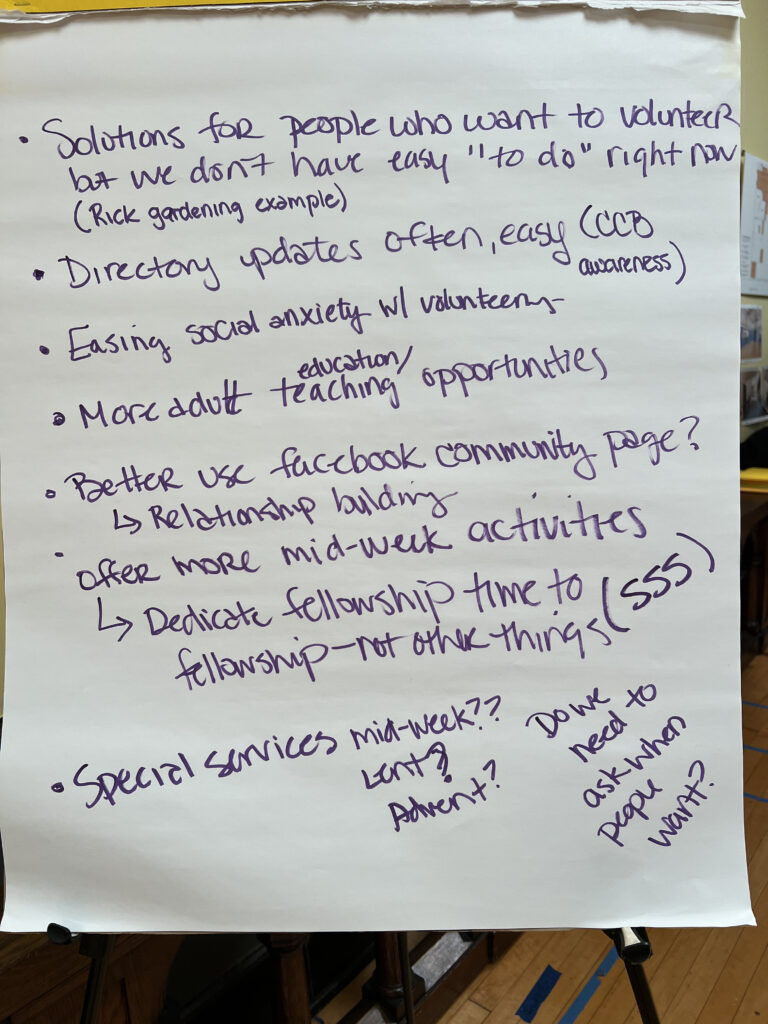 • Solutions for people who want to volunteer
but we don't have easy "to do" right now
(Rick gardening example)
• Directory updates often, easy (CCB
awareness)
• Easing social anxiety w/ volunteering
• More adult education/
teaching opportunities
• Better use facebook community page?
↳ Relationship building
• offer more mid-week activities
↳ Dedicate fellowship time to
fellowship - not other things (SSS)
• Special services mid-week??
Lent?
Advent?
Do we
need to
ask when
people
want?